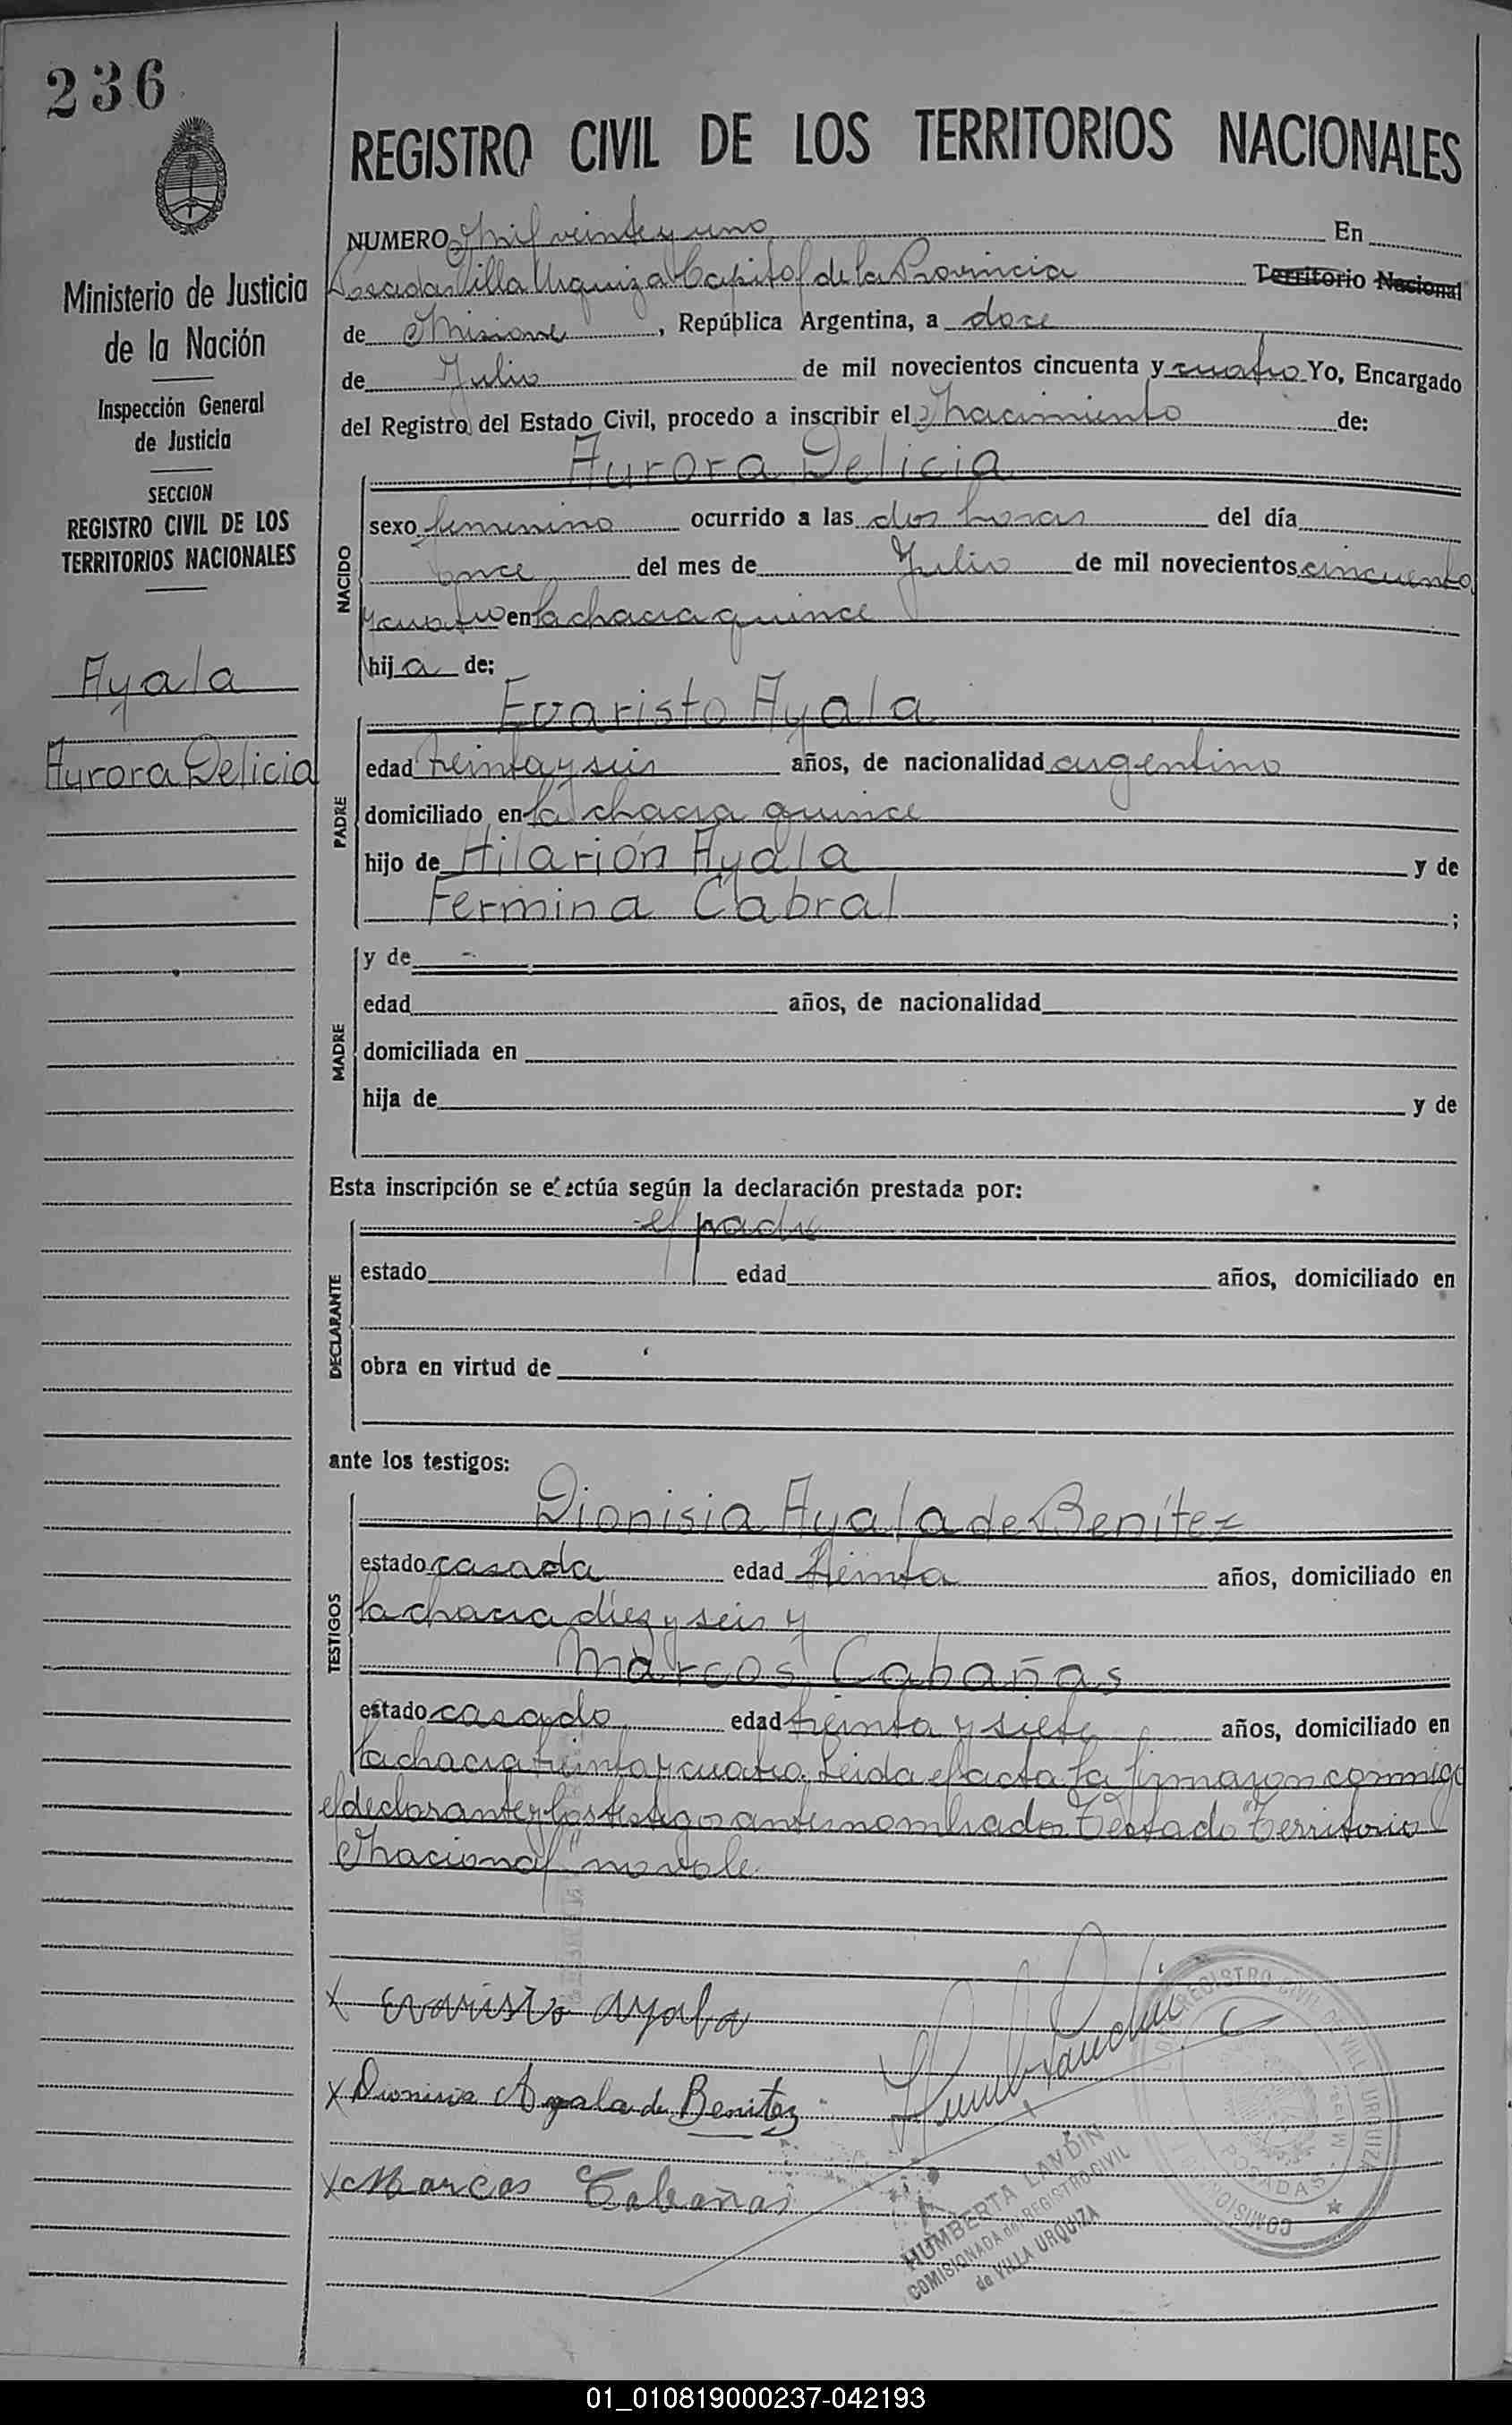 236
Ministerio de Justicia
de la Nación
Inspección General
de Justicia
SECCION
REGISTRO CIVIL DE LOS
TERRITORIOS NACIONALES
Ayala
Aurora Delicia
REGISTRO CIVIL DE LOS TERRITORIOS NACIONALES
NUMERO Mil veinte y uno En
Posadas Villa Urquiza Capital de la Provincia Territorio Nacional
de Misiones, República Argentina, a doce
de Julio de mil novecientos cincuenta y cuatro Yo, Encargado
del Registro del Estado Civil, procedo a inscribir el nacimiento de:
Aurora Delicia
NACIDO
sexo femenino ocurrido a las dos horas del día
once del mes de Julio de mil novecientos cincuenta
y cuatro en la chacra quince
hija de:
Evaristo Ayala
PADRE
edad treinta y seis años, de nacionalidad argentino
domiciliado en la chacra quince
hijo de Hilarión Ayala y de
Fermina Cabral ;
MADRE
y de -
edad años, de nacionalidad
domiciliada en
hija de y de
Esta inscripción se efectúa según la declaración prestada por:
el padre
DECLARANTE
estado edad años, domiciliado en
obra en virtud de
ante los testigos:
Dionisia Ayala de Benítez
TESTIGOS
estado casada edad treinta años, domiciliado en
la chacra diez y seis y
Marcos Cabañas
estado casado edad treinta y siete años, domiciliado en
la chacra treinta y cuatro. Leida el acta la firmaron conmigo
el declarante y los testigos antes nombrados Testado "Territorio
Nacional" no vale.
x Evaristo ayala
x Dionisia Ayala de Benitez
x Marcos Cabañas
HUMBERTA LANDIN
COMISIONADA del REGISTRO CIVIL
de VILLA URQUIZA
REGISTRO CIVIL DE VILLA URQUIZA
POSADAS
01_010819000237-042193